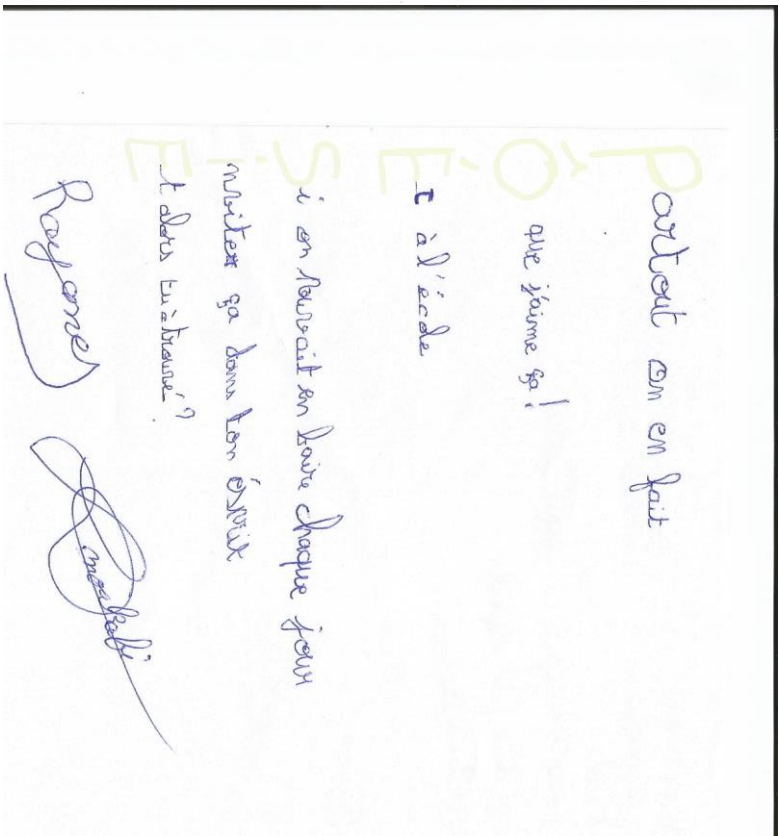 Partout on en fait
Ô que j'aime ça!
Et à l'école
Si on pouvait en baire chaque jour
inviter ça dans ton ésprit
Et alors tu à trouvé?
Rayane